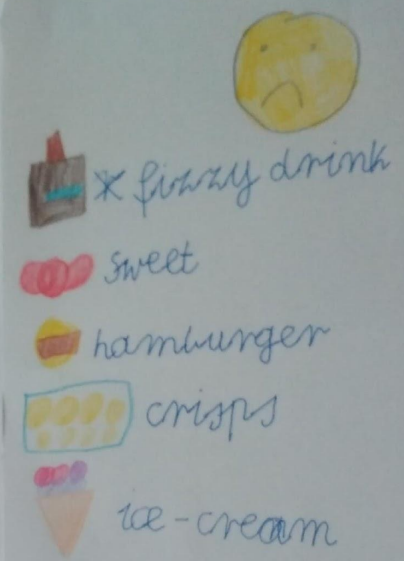 * fizzy drink
sweet
hamburger
crisps
ice-cream